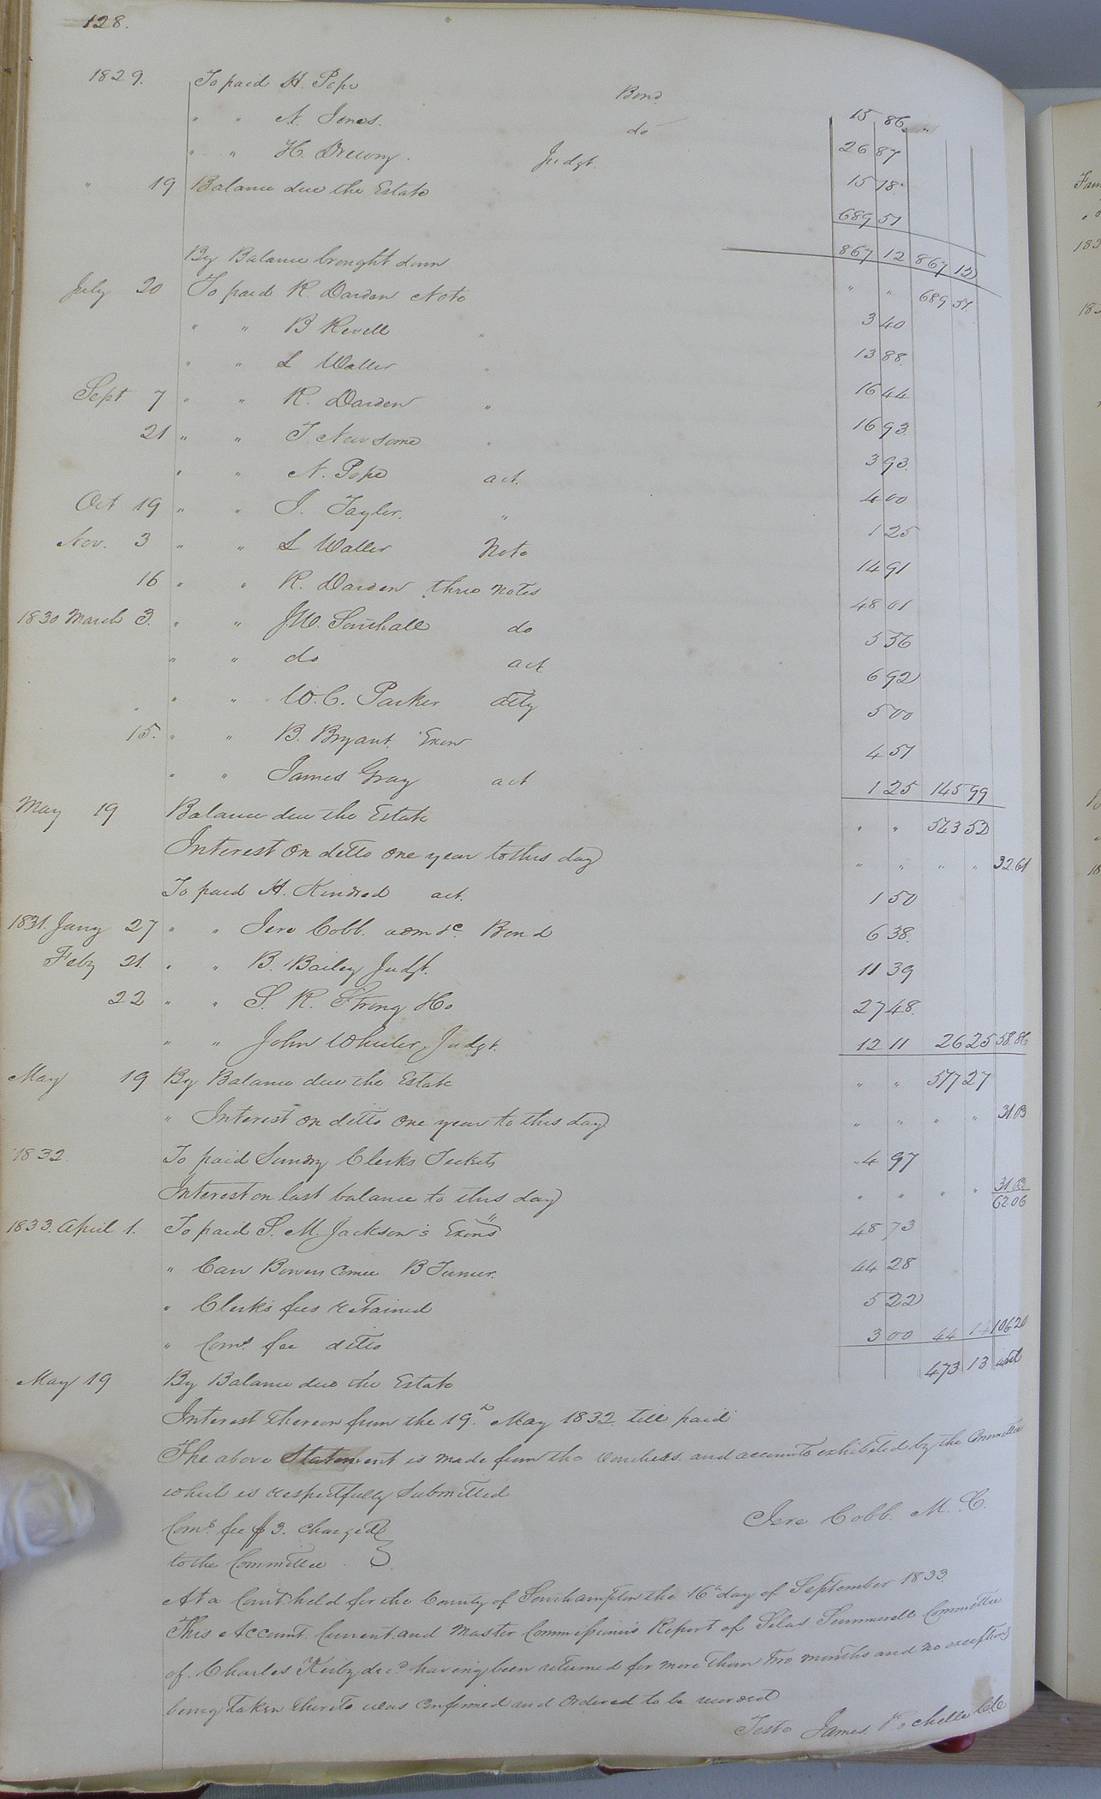 128.
1829. To paid H. Pope Bond 15 86
" " N. Jones. do 26 87
" " H. Drewry. Judgt. 15 18
" 19 Balance due the Estate 689 51
867 12 867 12
By Balance brought down " " 689 51
July 20 To paid R. Darden Note 3 40
" " B Revell " 13 88
" " L Waller " 16 44
Sept 7 " " R. Darden " 16 93
21 " " T. Newsome " 3 93
" " N. Pope act. 4 00
Oct 19 " " J. Taylor. " 1 25
Nov. 3 " " L Waller Note 14 91
16 " " R. Darden three notes 48 01
1830 March 3. " " J.W. Southall do 5 56
" " do act 6 92
" " W. C. Parker atty 5 00
15. " " B. Bryant. Exor 4 51
" " James Gray act 1 25 145 99
May 19 Balance due the Estate " " 543 52
Interest on ditto one year to this day " " " " 32.61
To paid H. Kindred act. 1 50
1831. Jany 27 " " Jere Cobb. adm &c. Bond 6 38
Feby 21. " " B. Bailey Judgt. 11 39
22 " " 27 48
" " John Wheeler, Judgt. 12 11 26 25 58.86
May 19 By Balance due the Estate " " 517 27
" Interest on ditto one year to this day " " " " 31.03
1832. To paid Sundry Clerks Tickets 4 97
Interest on last balance to this day " " " " 31.03
62.06
1833. April 1. To paid S. M. Jackson's Exors 48 73
" Carr Bowers Comee B Turner. 44 28
" Clerk's fees retained 5 22
" Coms. fee ditto 3 00 44 14 106 20
May 19 By Balance due the Estate 473 13
Interest thereon from the 19th May 1832 till paid
The above Statement is made from the vouchers and accounts exhibited by the Committee
which is respectfully submitted
Jere Cobb. M. C.
Coms fee $3. charged
to the Committee
At a Court held for the County of Southampton the 16th day of September 1833.
This Account Current and Master Commissioner's Report of Silas Summerell Committee
of Charles Kirby decd having been returned for more than two months and no exceptions
being taken thereto was confirmed and ordered to be record
Teste James Rochelle CC